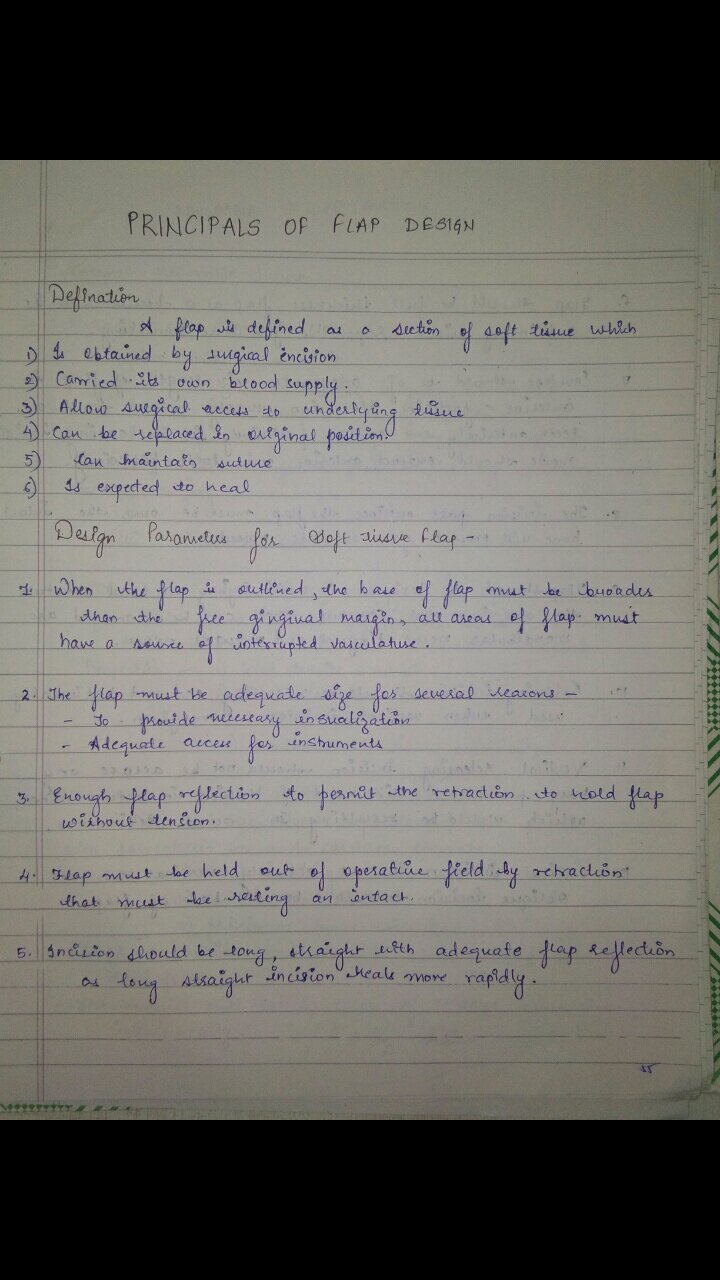 PRINCIPALS OF FLAP DESIGN
Defination
A flap is defined as a section of soft tissue which
1) Is obtained by surgical incision
2) Carried its own blood supply.
3) Allow surgical access to underlying tissue
4) Can be replaced in original position.
5) Can maintain suture
6) Is expected to heal
Design Parameters for soft tissue flap -
1. When the flap is outlined, the base of flap must be broader
than the free gingival margin, all areas of flap must
have a source of interrupted vasculature.
2. The flap must be adequate size for several reasons -
- To provide necessary insualization
- Adequate access for instruments
3. Enough flap reflection to permit the retraction to hold flap
without tension.
4. Flap must be held out of operative field by retraction
that must be resting an intact.
5. Incision should be long, straight with adequate flap reflection
as long straight incision heals more rapidly.